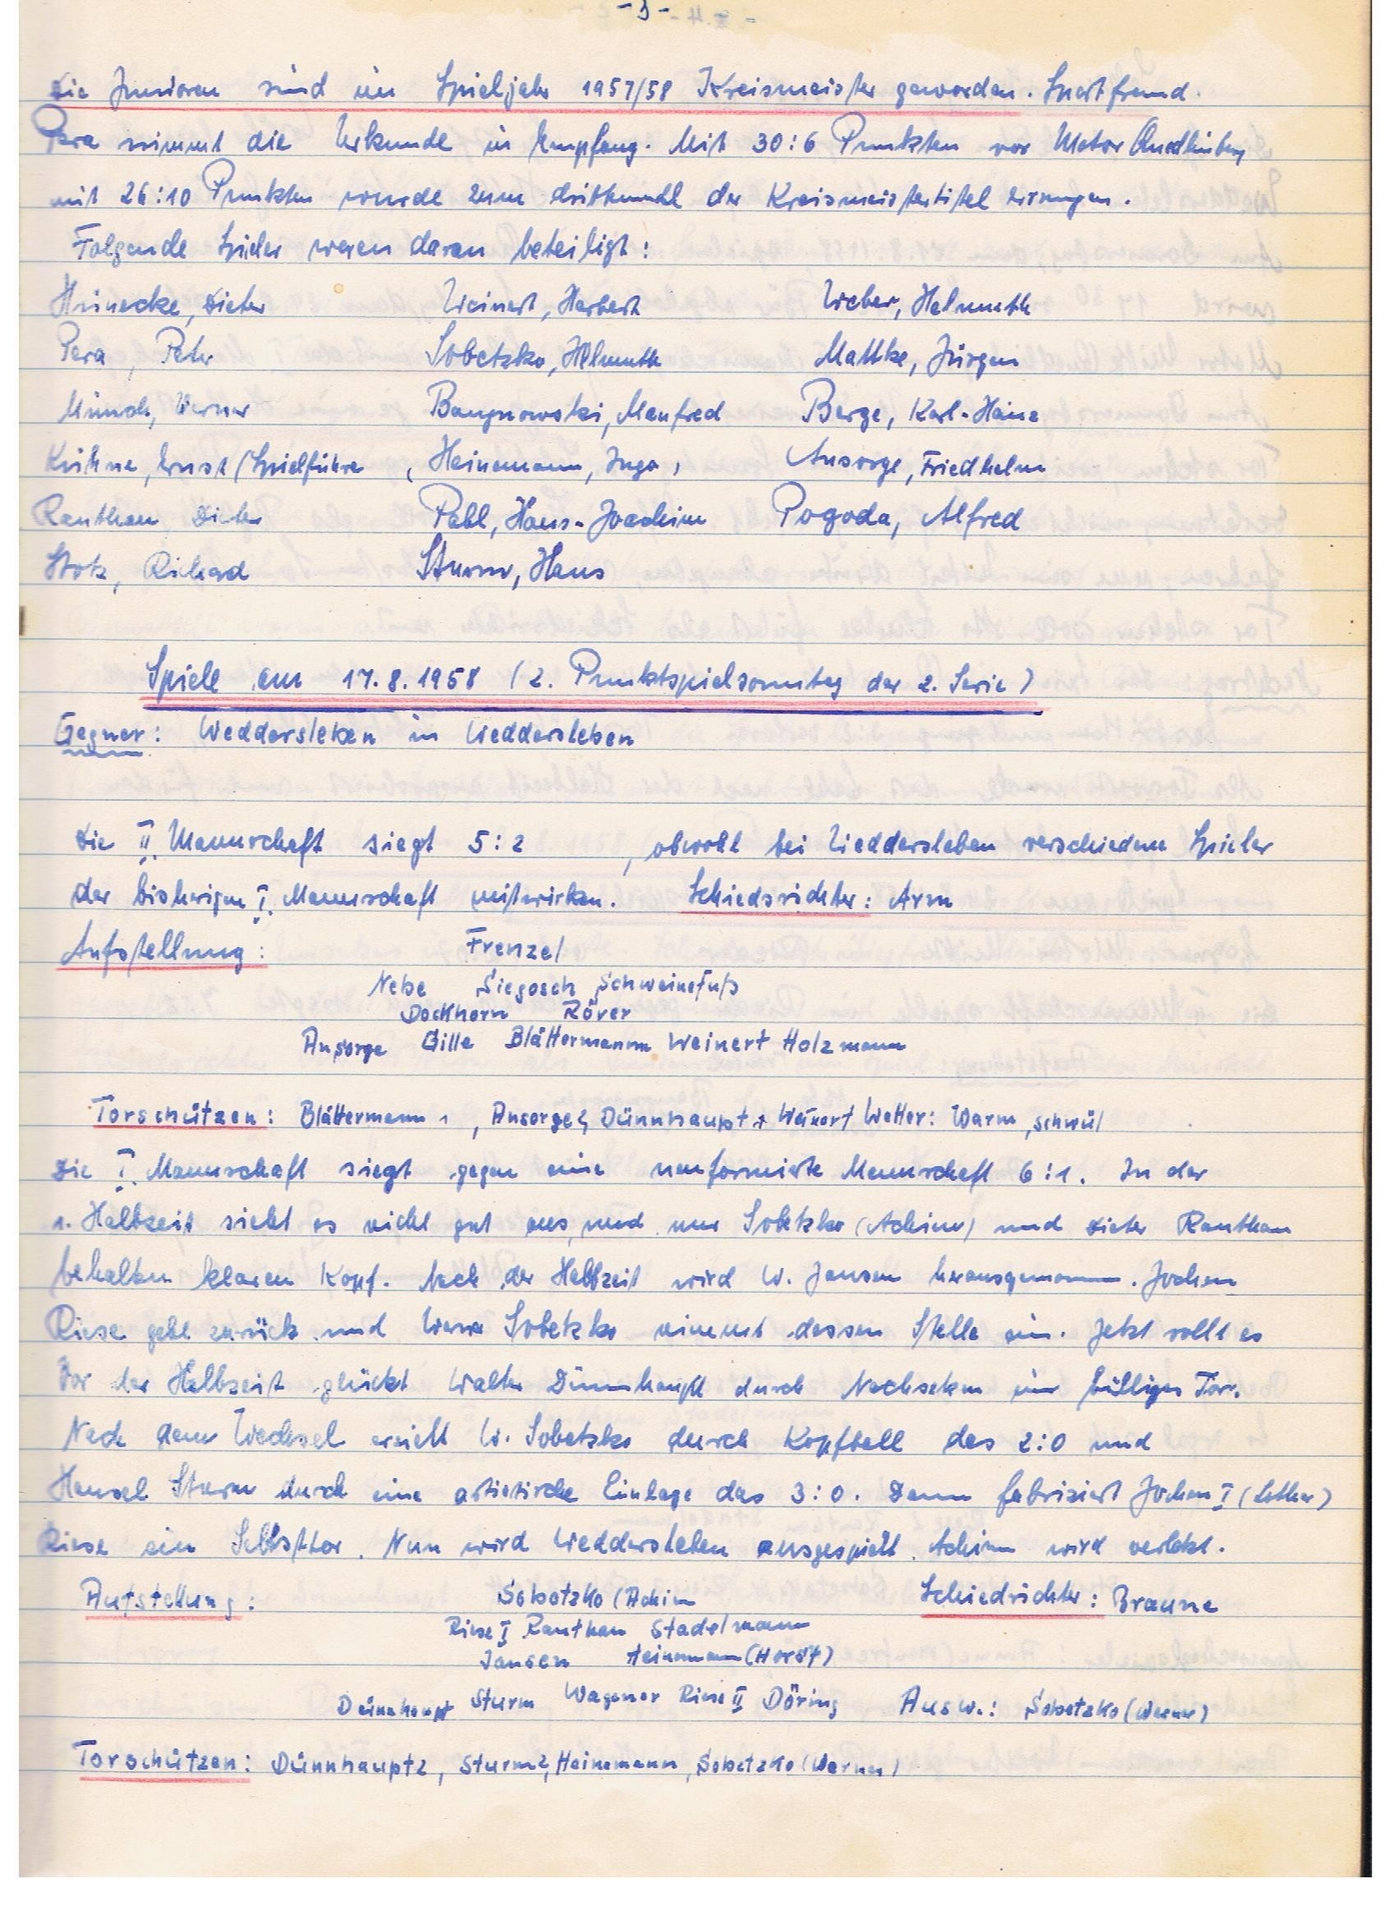 - 3 -
Die Junioren sind im Spieljahr 1957/58 Kreismeister geworden. Sportfreund
Pera nimmt die Urkunde in Empfang. Mit 30:6 Punkten vor Motor Quedlinburg
mit 26:10 Punkten wurde zum drittenmal der Kreismeistertitel errungen.
Folgende Spieler waren daran beteiligt:
Heinecke, Dieter Weinert, Herbert Weber, Helmuth
Pera, Peter Sobetzko, Helmuth Mattke, Jürgen
Münch, Werner Baugnowski, Manfred Berge, Karl-Heinz
Kühne, Ernst (Spielführer, Heinemann, Ingo, Ansorge, Friedhelm
Ranthan Dieter Pahl, Hans-Joachim Pogoda, Alfred
Stotz, Richard Sturm, Hans
Spiele am 17.8.1958 (2. Punktspielsonntag der 2. Serie)
Gegner: Weddersleben in Weddersleben
Die II. Mannschaft siegt 5:2, obwohl bei Weddersleben verschiedene Spieler
der bisherigen I. Mannschaft mitwirken. Schiedsrichter: Arm
Aufstellung: Frenzel
Nebe Siegosch Schweinefuß
Dockhorn Röver
Ansorge Gille Blättermann Weinert Holzmann
Torschützen: Blättermann 1, Ansorge 2, Dünnhaupt 1 Weinert Wetter: Warm, schwül
Die I. Mannschaft siegt gegen eine neuformierte Mannschaft 6:1. In der
1. Halbzeit sieht es nicht gut aus, und nur Sobetzko (Achim) und Dieter Ranthan
behalten klaren Kopf. Nach der Halbzeit wird W. Jansen herausgenommen. Jochen
Riese geht zurück und Werner Sobetzko nimmt dessen Stelle ein. Jetzt rollt es
Vor der Halbzeit glückt Walter Dünnhaupt durch Nachsetzen ein billiges Tor.
Nach dem Wechsel erzielt W. Sobetzko durch Kopfball das 2:0 und
Hansel Sturm durch eine artistische Einlage das 3:0. Dann fabriziert Jochen I (Lothar)
Riese ein Selbsttor. Nun wird Weddersleben ausgespielt. Achim wird verletzt.
Aufstellung: Sobotzko (Achim Schiedrichter: Braune
Riese I Ranthan Stadelmann
Jansen Heinemann (Horst)
Dünnhaupt Sturm Wagener Riese II Döring Ausw.: Sobotzko (Werner)
Torschützen: Dünnhaupt 2, Sturm 2, Heinemann, Sobetzko (Werner)